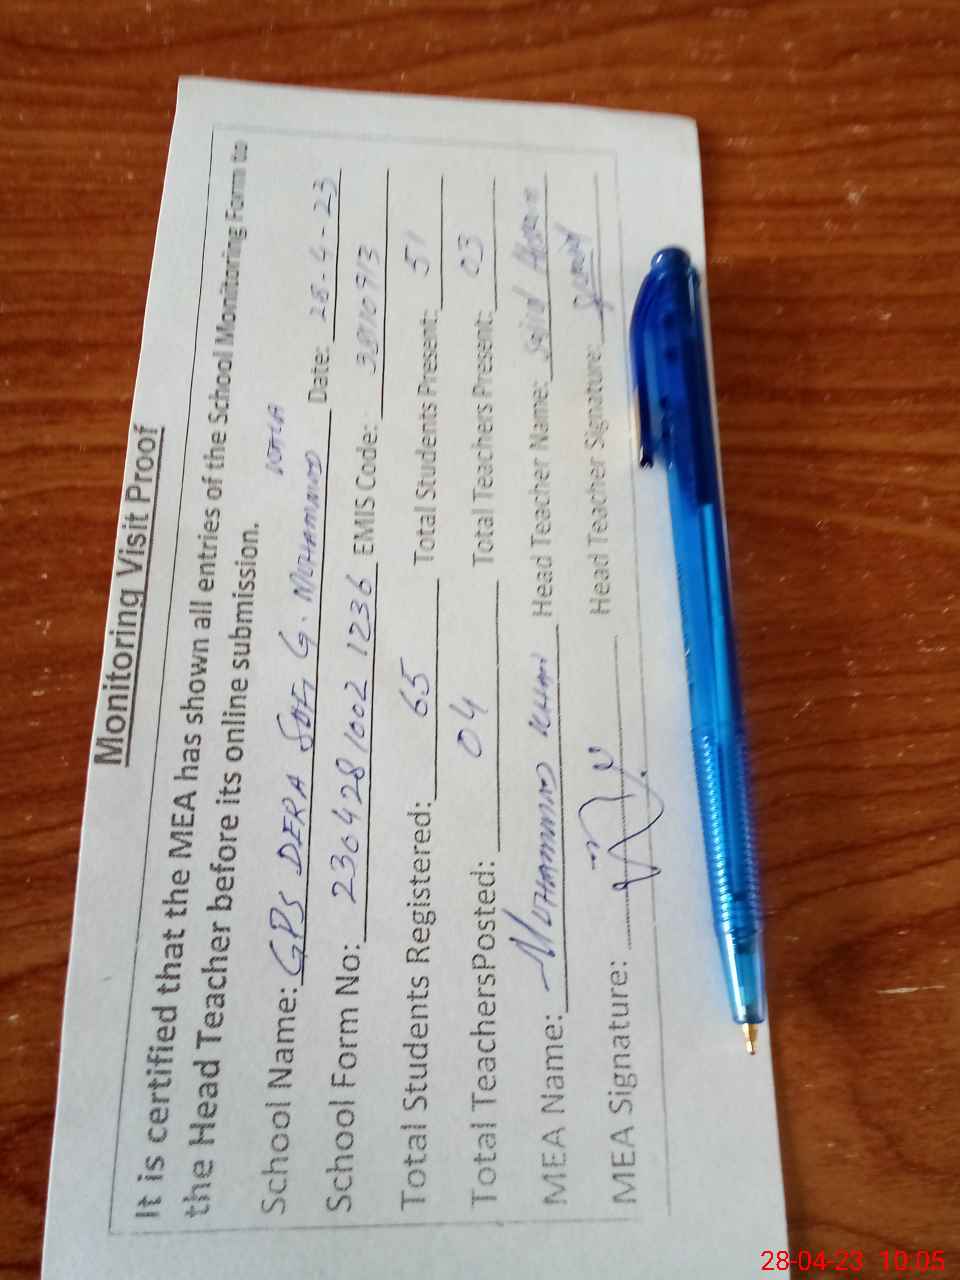 Monitoring Visit Proof
It is certified that the MEA has shown all entries of the School Monitoring Form to
the Head Teacher before its online submission.
School Name: GPS DERA G. MUHAMMAD Date: 28-4-23
School Form No: 230428 1002 1236 EMIS Code:
Total Students Registered: 65 Total Students Present: 51
Total TeachersPosted: 04 Total Teachers Present: 03
MEA Name: MUHAMMAD KHAN Head Teacher Name:
MEA Signature: Head Teacher Signature:
28-04-23 10:05